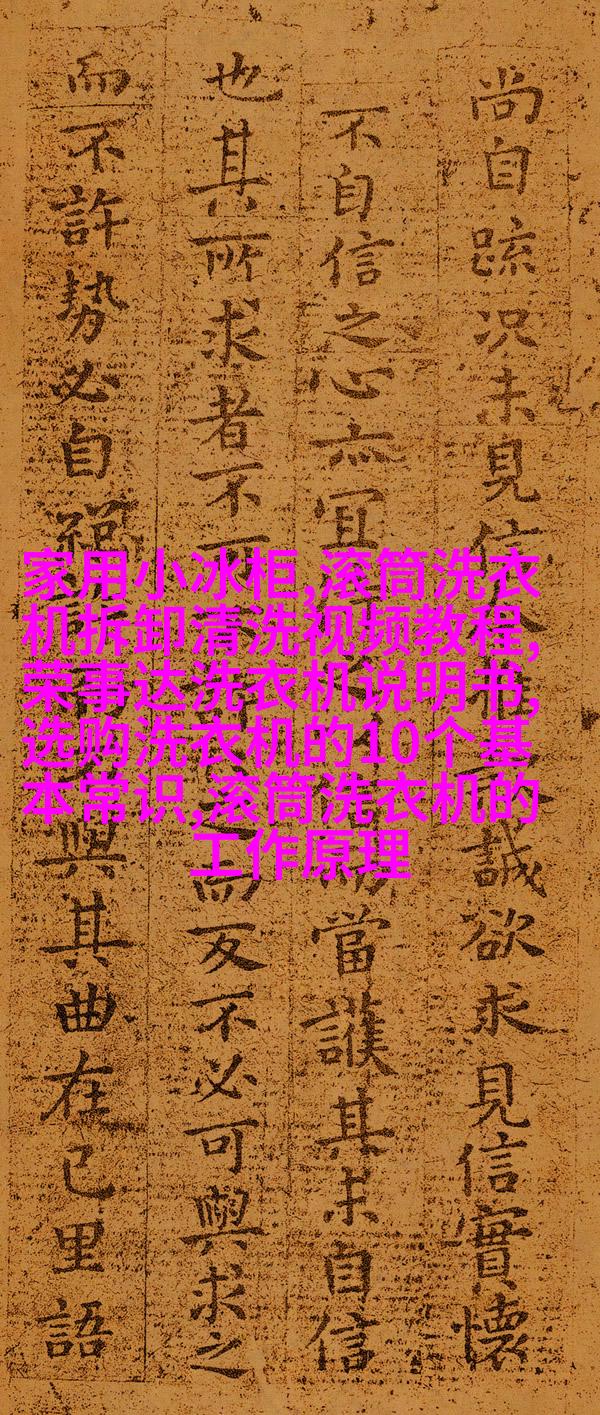 尚自疏况未見信誠欲求見信實懷
不自信之心亦宜當護其未自信
也其所求者不而反不必可與求之
而不許勢必自與其曲在己里語
家用小冰柜,滚筒洗衣
机拆卸清洗视频教程,
荣事达洗衣机说明书,
选购洗衣机的10个基
本常识,滚筒洗衣机的
工作原理